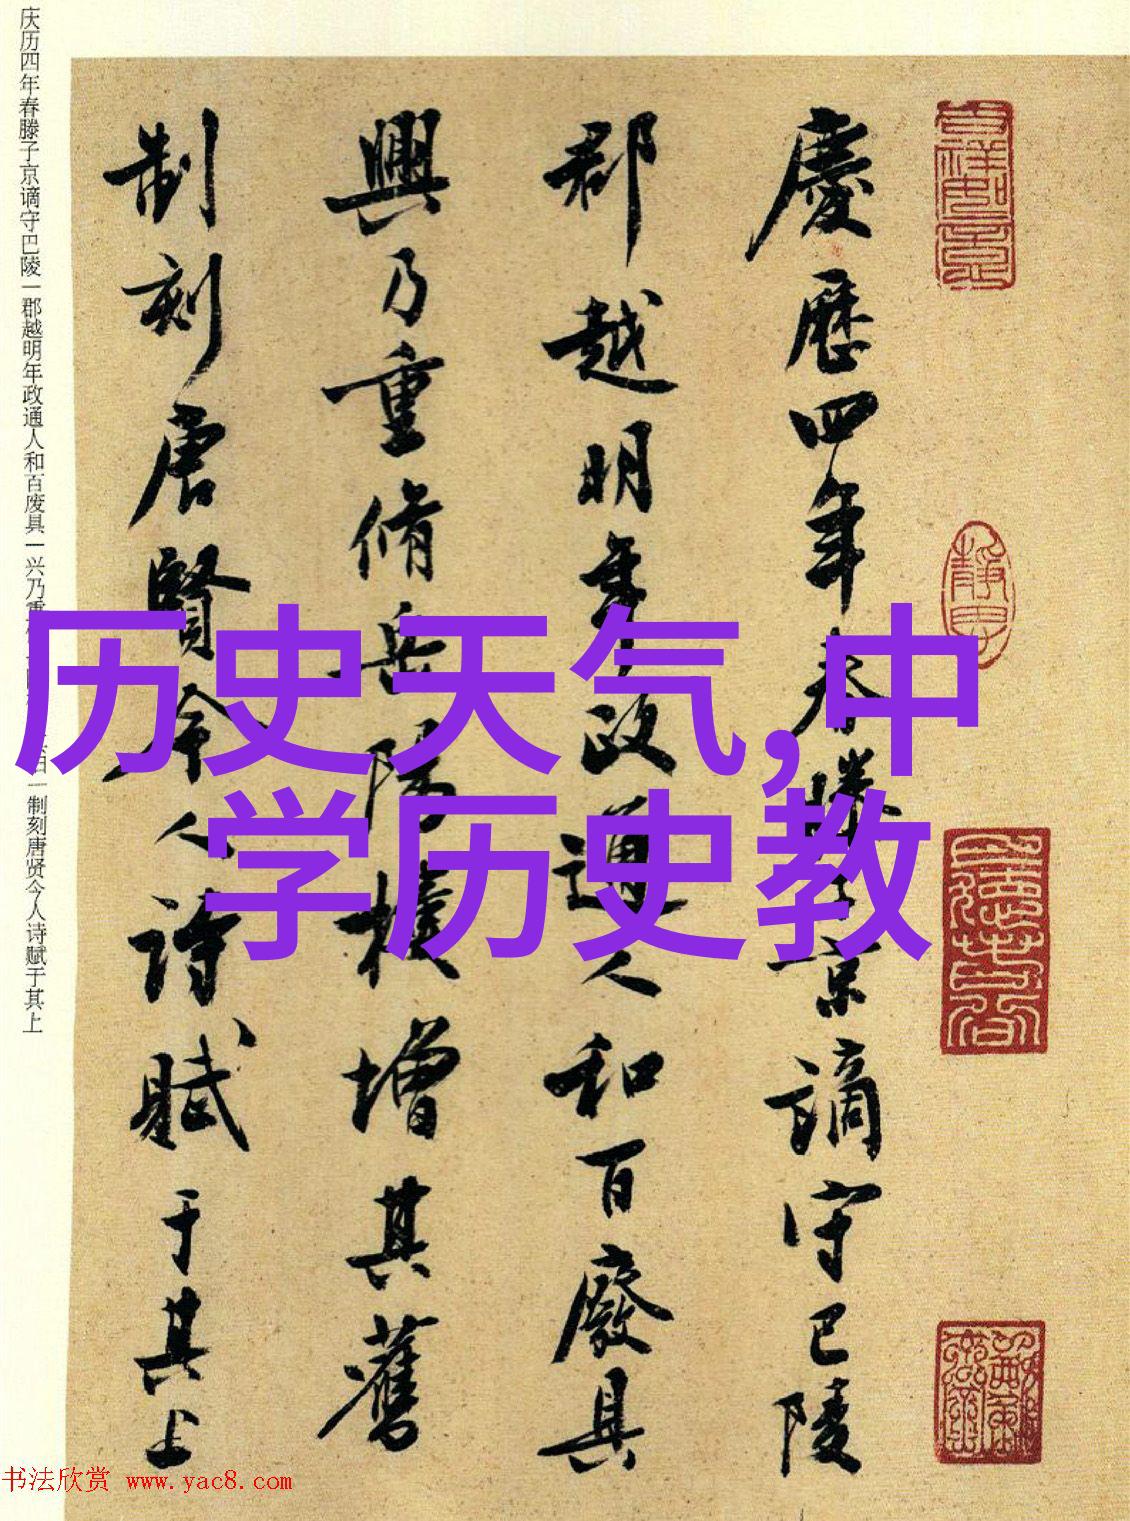 历史天气,中
学历史教
慶歷四年春滕子京謫守巴陵
郡越明年政通人和百廢具
興乃重脩岳陽樓增其舊
制刻唐賢今人詩賦于其上
庆历四年春滕子京谪守巴陵一郡越明年政通人和百废具一兴乃重
一制刻唐贤今人诗赋于其上
书法欣赏 www.yac8.com